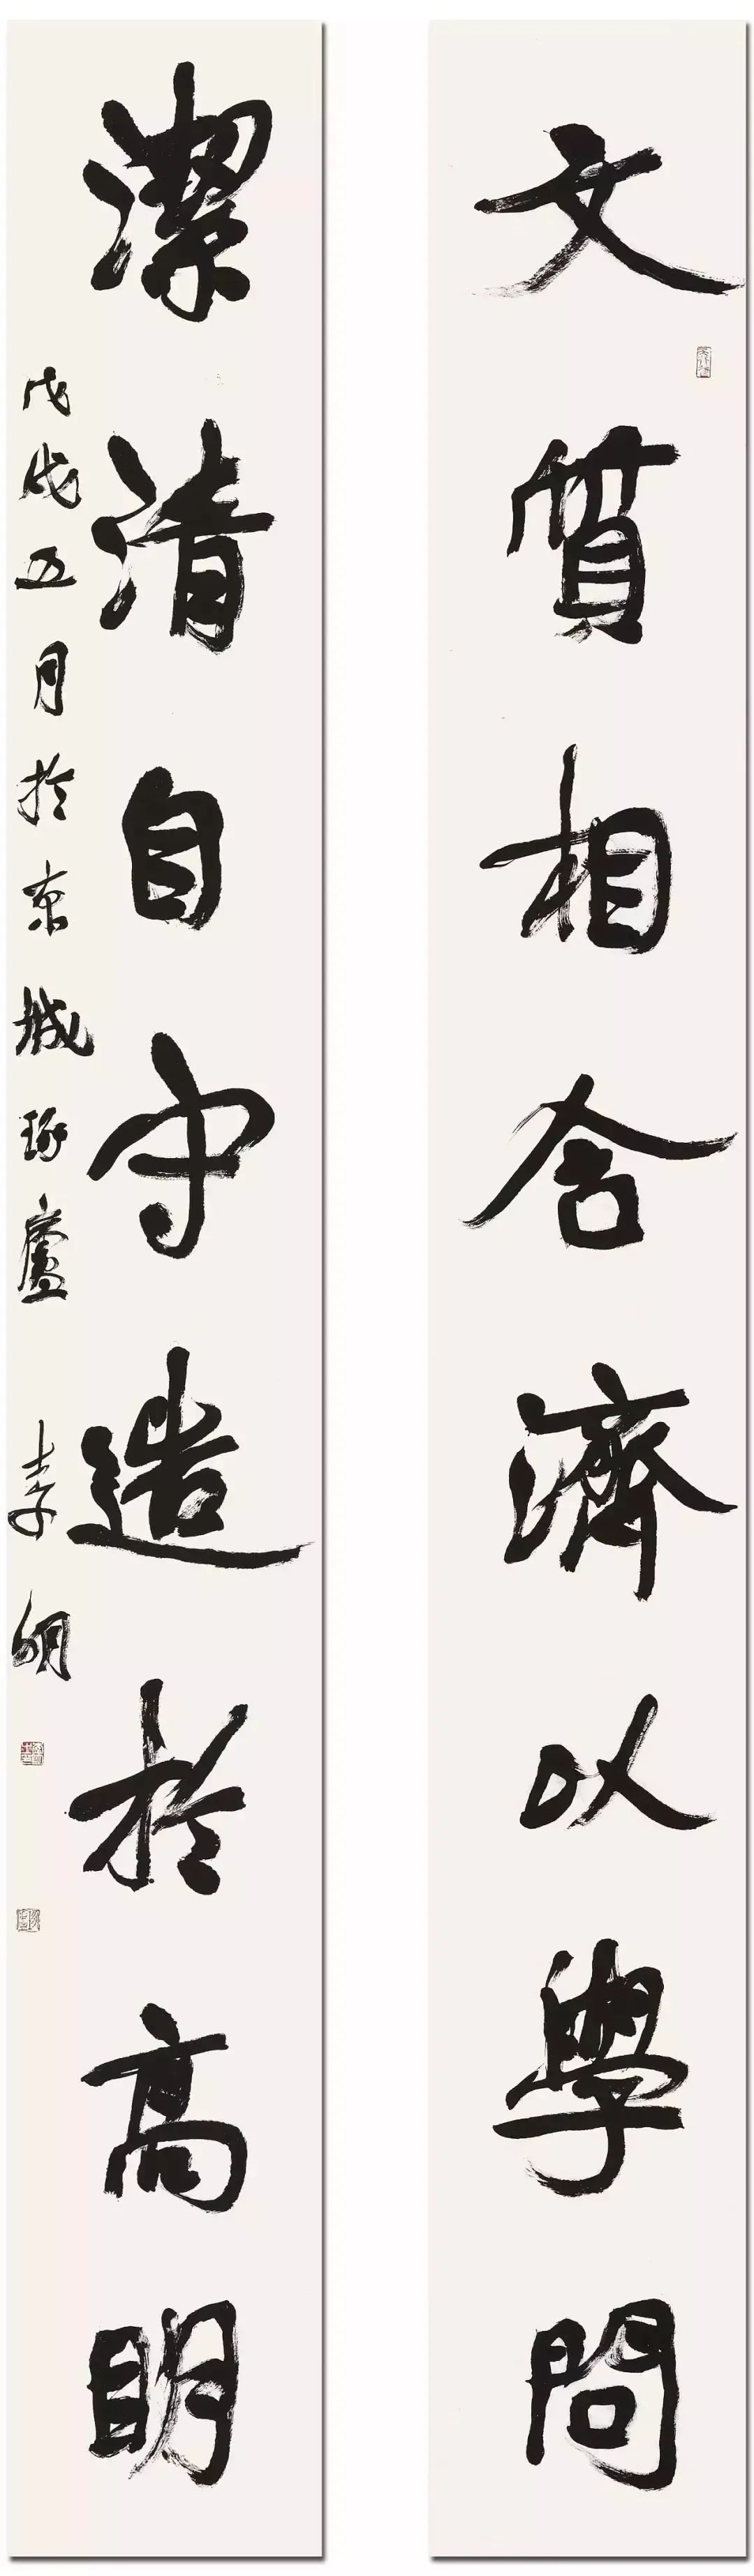 文質相合濟以學問
潔清自守造於高明
戊戌五月於京城琢廬 李明